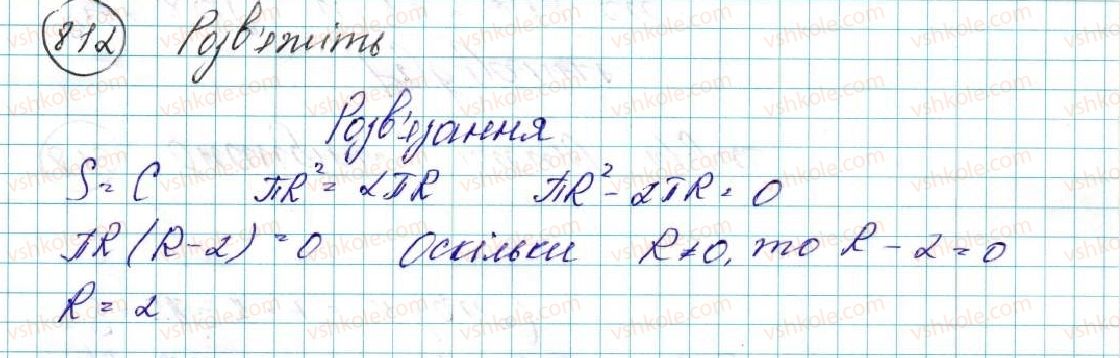 812 Розв'яжіть
Розв'язання
S = C πR² = 2πR πR² - 2πR = 0
πR (R - 2) = 0 Оскільки R ≠ 0, то R - 2 = 0
R = 2